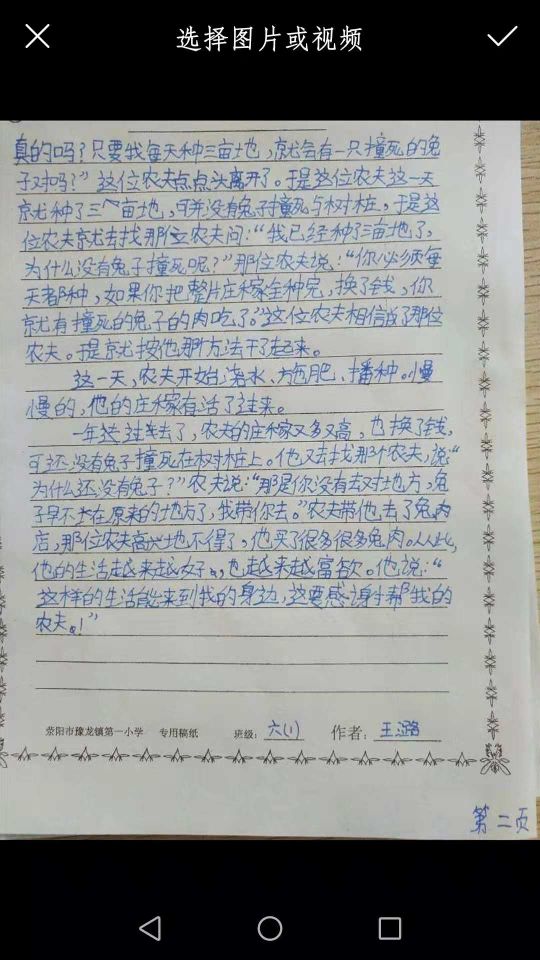 选择图片或视频
真的吗？只要我每天种三亩地，就会有一只撞死的兔
子对吗？”这位农夫点点头离开了。于是这位农夫这一天
就种了三亩地，可并没有兔子撞死与树桩，于是这
位农夫就去找那位农夫问：“我已经种了三亩地了，
为什么没有兔子撞死呢？”那位农夫说：“你必须每
天都种，如果你把整片庄稼全种完，换了钱，你
就有撞死的兔子的肉吃了。”这位农夫相信了那位
农夫。于是就按他那方法干了起来。
这一天，农夫开始浇水、施肥、播种。慢
慢的，他的庄稼有活了过来。
一年过去了，农夫的庄稼又多又高，也换了钱，
可还没有兔子撞死在树桩上。他又去找那个农夫，说：“
为什么还没有兔子？”农夫说：“那是你没有去对地方，兔
子早不在原来的地方了，我带你去。”农夫带他去了兔肉
店，那位农夫高兴地不得了，他买了很多很多兔肉。从此，
他的生活越来越好，也越来越富饮。他说：“
这样的生活能来到我的身边，这要感谢帮我的
农夫。！”
荥阳市豫龙镇第一小学 专用稿纸 班级：六(1) 作者：王潞
第二页